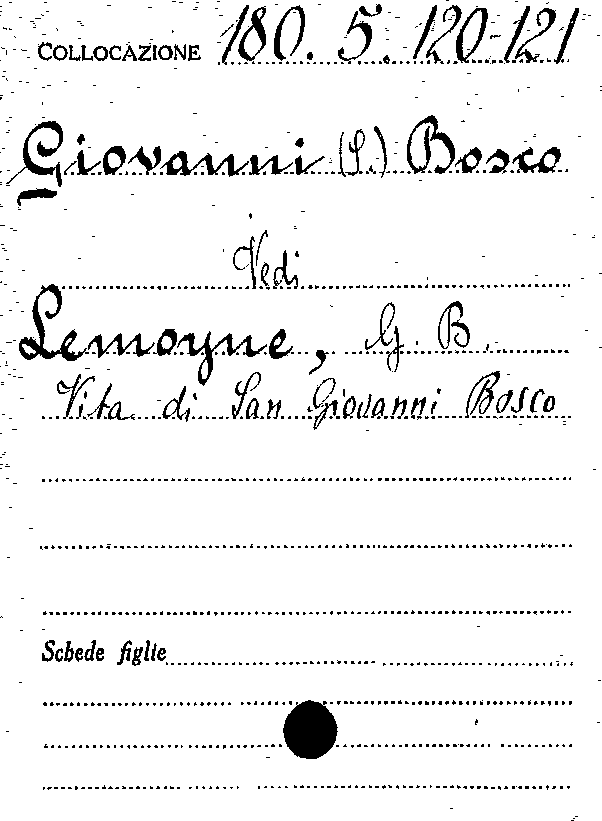 COLLOCAZIONE 180. 5. 120-121
Giovanni (S.) Bosco
Vedi
Lemoyne, G. B.
Vita di San Giovanni Bosco
Schede figlie